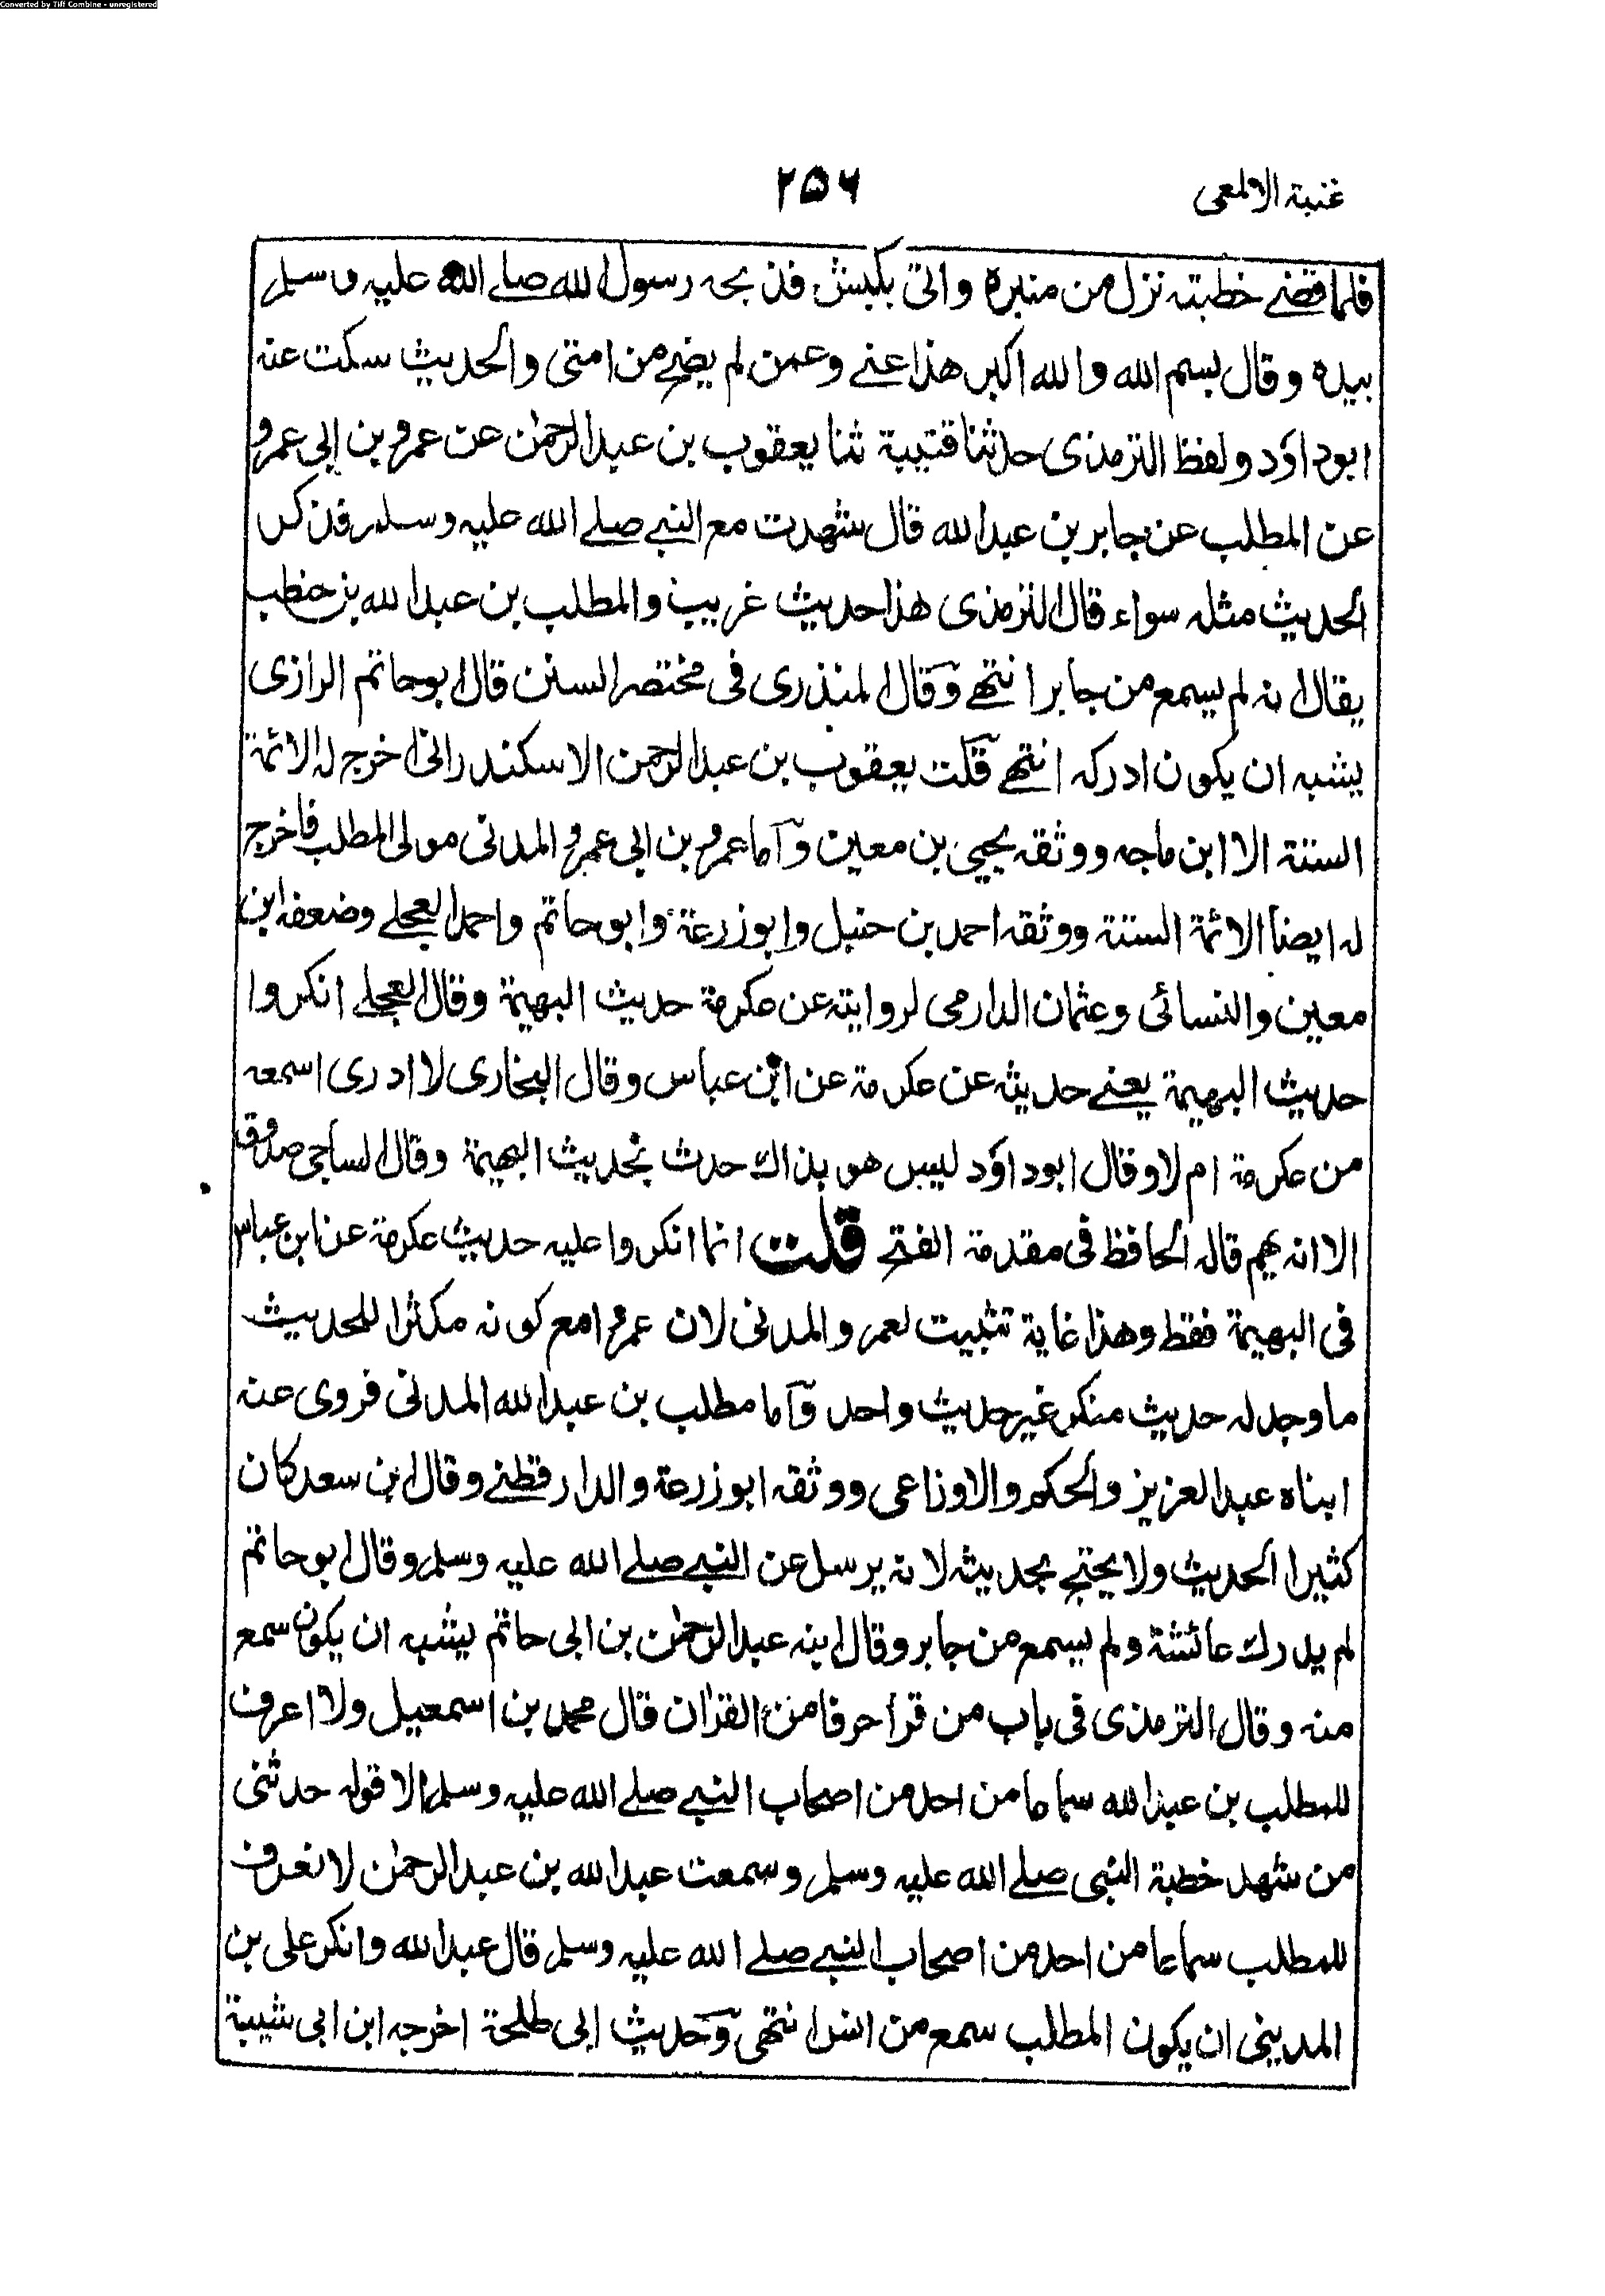 Converted by Tiff Combine - unregistered
غنية الالمعى
۲۵۶
فلما قضے خطبته نزل من منبره واتى بكبش فذبحه رسول الله صلے الله عليه وسلم
بيده وقال بسم الله والله اكبر هذا عنے وعمن لم يضح من امتى والحديث سكت عنه
ابوداؤد ولفظ الترمذى حدثنا قتيبة ثنا يعقوب بن عبدالرحمٰن عن عمرو بن ابى عمرو
عن المطلب عن جابر بن عبدالله قال شهدت مع النبے صلے الله عليه وسلم فذكر
الحديث مثله سواء قال الترمذى هذا حديث غريب والمطلب بن عبدالله بن حنطب
يقال انه لم يسمع من جابر انتهے وقال المنذرى فى مختصر السنن قال ابوحاتم الرازى
يشبه ان يكون ادركه انتهے قلت يعقوب بن عبدالرحمن الاسكندرانى اخرج له الائمة
الستة الا ابن ماجه ووثقه يحيى بن معين واما عمرو بن ابى عمرو المدنى مولى المطلب فاخرج
له ايضا الائمة الستة ووثقه احمد بن حنبل وابوزرعة وابوحاتم واحمد العجلے وضعفه ابن
معين والنسائى وعثمان الدارمى لروايته عن عكرمة حديث البهيمة وقال العجلے انكروا
حديث البهيمة يعنے حديثه عن عكرمة عن ابن عباس وقال البخارى لا ادرى اسمعه
من عكرمة ام لا وقال ابوداؤد ليس هو بذاك حدث بحديث البهيمة وقال الساجى صدوق
الا انه يهم قاله الحافظ فى مقدمة الفتح قلت انما انكروا عليه حديث عكرمة عن ابن عباس
فى البهيمة فقط وهذا غاية تثبيت لعمرو المدنى لان عمروا مع كونه مكثرا للحديث
ما وجد له حديث منكر غير حديث واحد واما مطلب بن عبدالله المدنى فروى عنه
ابناه عبدالعزيز والحكم والاوزاعى ووثقه ابوزرعة والدارقطنے وقال ابن سعد كان
كثيرا الحديث ولا يحتج بحديثه لانه يرسل عن النبے صلے الله عليه وسلم وقال ابوحاتم
لم يدرك عائشة ولم يسمع من جابر وقال ابنه عبدالرحمٰن بن ابى حاتم يشبه ان يكون سمع
منه وقال الترمذى فى باب من قرأ حرفا من القراٰن قال محمد بن اسمعيل ولا اعرف
للمطلب بن عبدالله سماعا من احد من اصحاب النبے صلے الله عليه وسلم الا قوله حدثنى
من شهد خطبة النبى صلے الله عليه وسلم وسمعت عبدالله بن عبدالرحمٰن لا نعرف
للمطلب سماعا من احد من اصحاب النبے صلے الله عليه وسلم قال عبدالله وانكر على بن
المدينى ان يكون المطلب سمع من انس انتهى وحديث ابى طلحة اخرجه ابن ابى شيبة